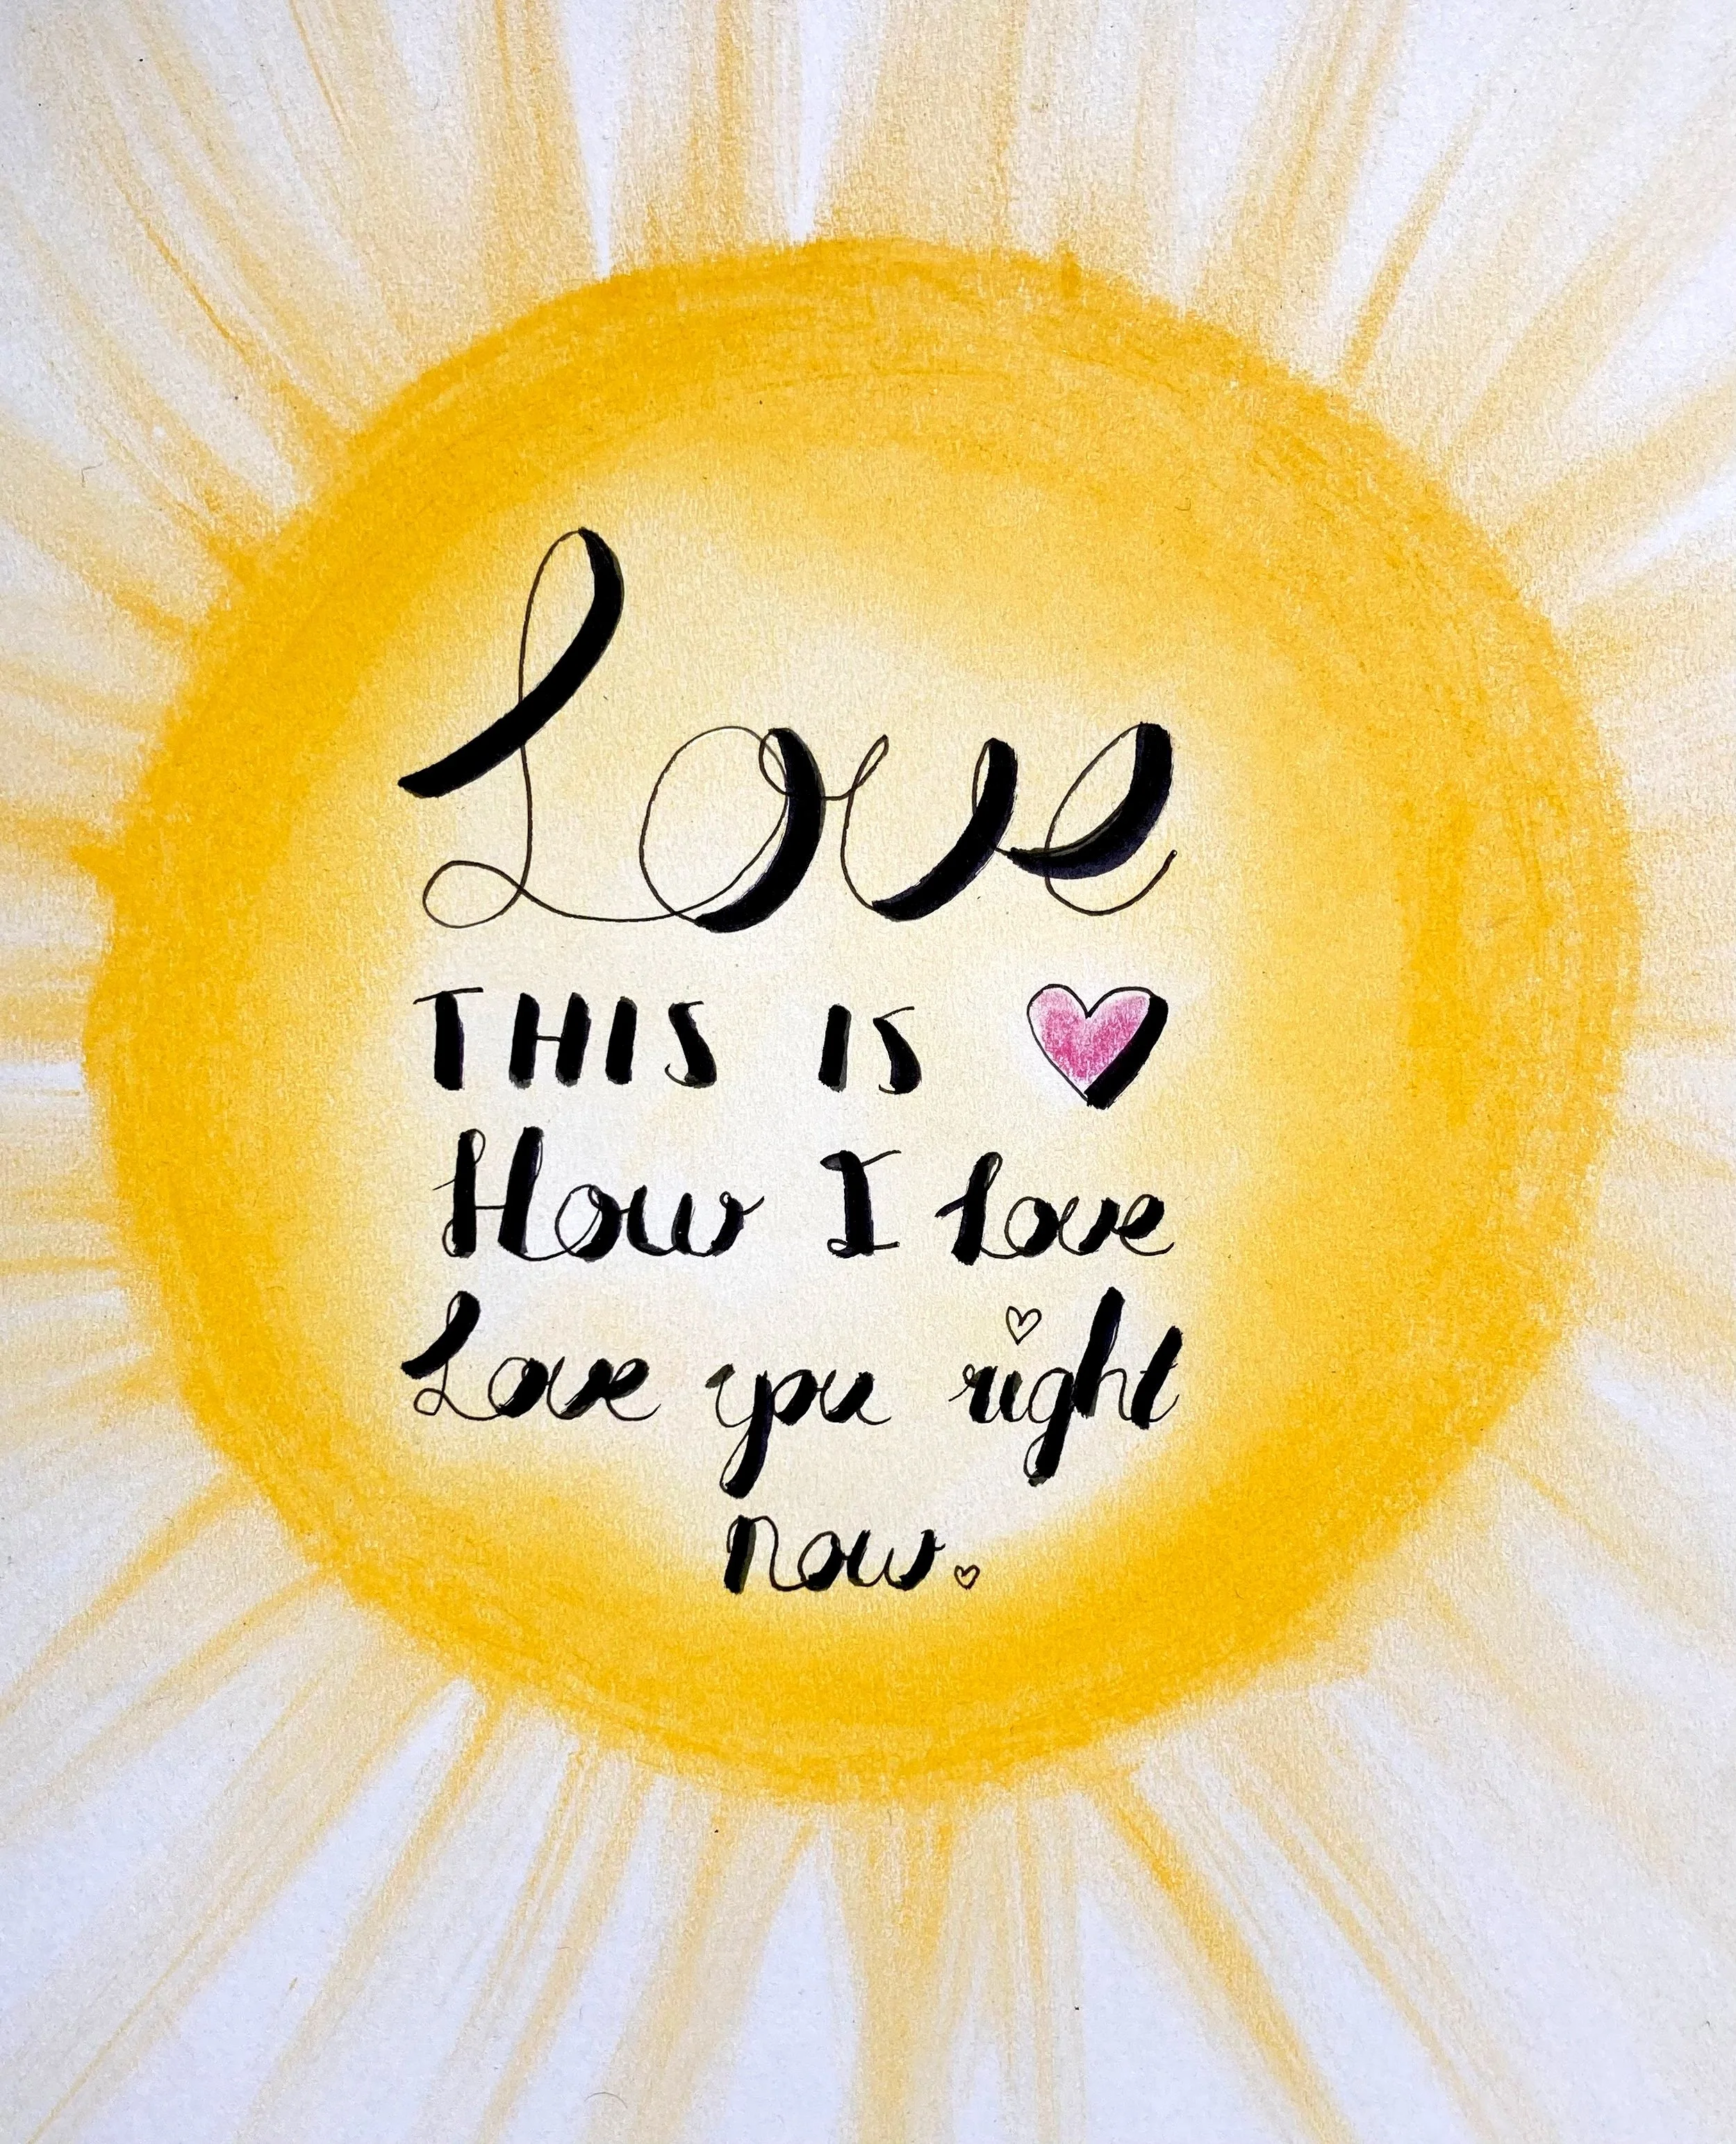 Love
THIS IS
How I love
Love you right
now.